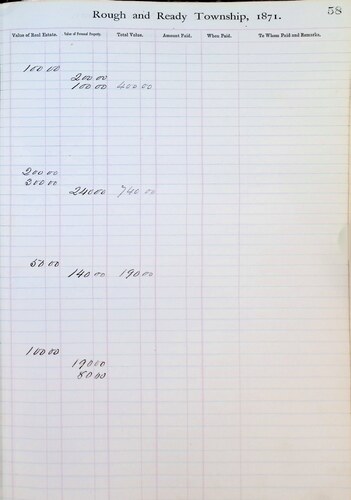 58
Rough and Ready Township, 1871.
Value of Real Estate. Value of Personal Property. Total Value. Amount Paid. When Paid. To Whom Paid and Remarks.
100 00
200 00
100 00 400 00
200 00
300 00
240 00 740 00
50 00
140 00 190 00
100 00
190 00
80 00